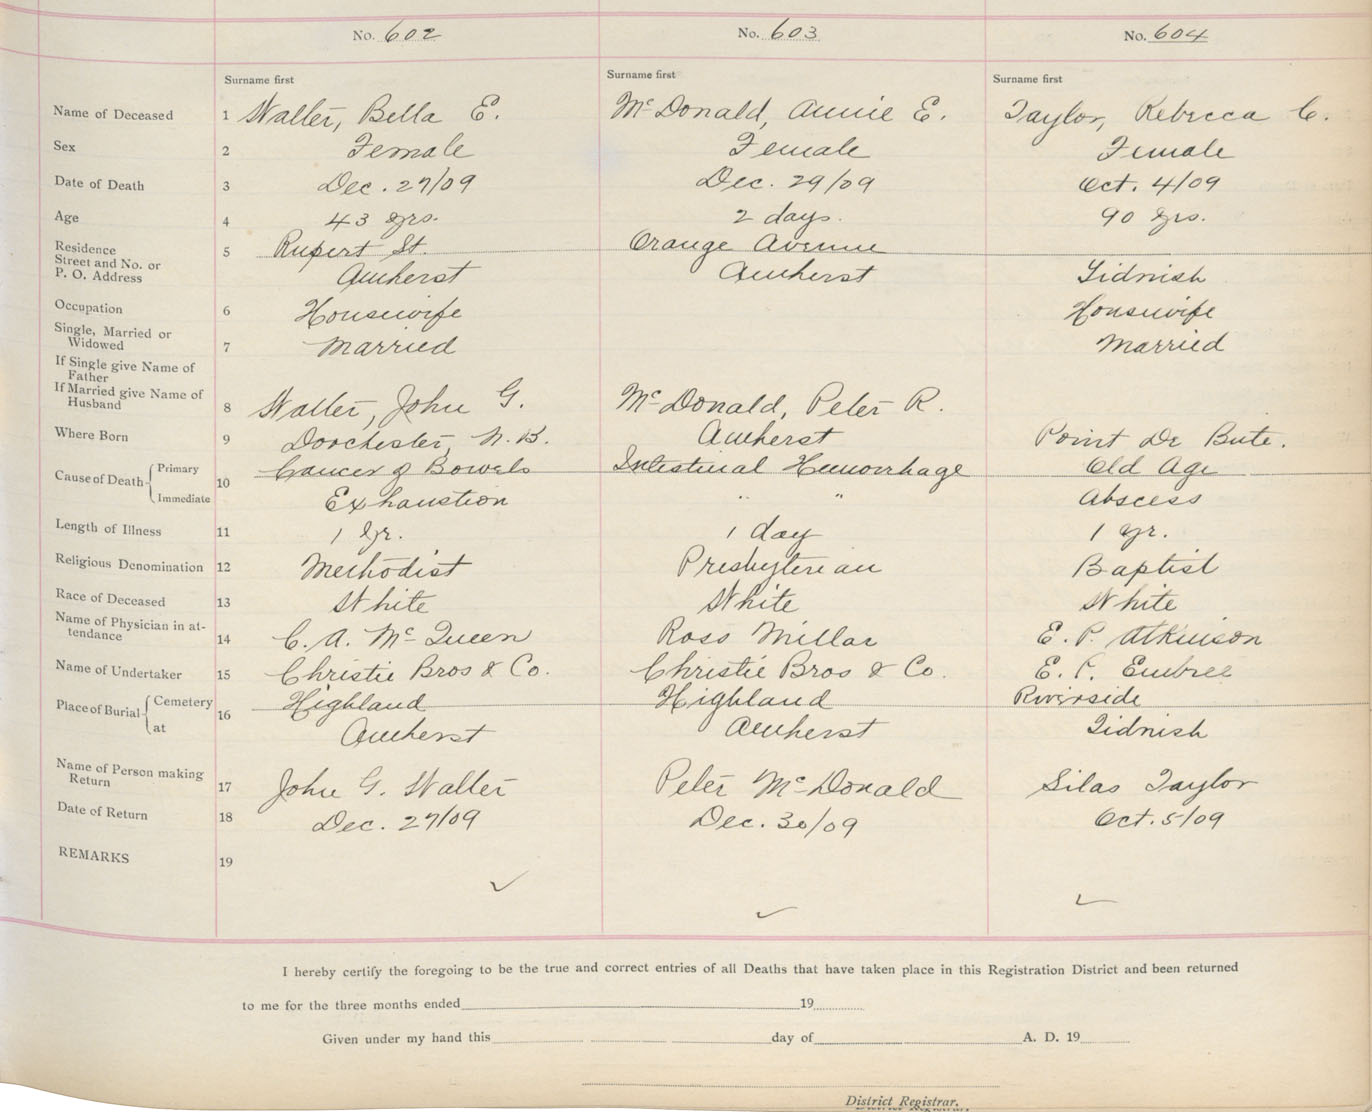 No. 602 No. 603 No. 604
Surname first Surname first Surname first
Name of Deceased 1 Walter, Bella E. McDonald, Annie E. Taylor, Rebecca C.
Sex 2 Female Female Female
Date of Death 3 Dec. 27/09 Dec. 29/09 Oct. 4/09
Age 4 43 yrs. 2 days. 90 yrs.
Residence Rupert St. Orange Avenue
Street and No. or 5
P. O. Address Amherst Amherst Tidnish
Occupation 6 Housewife Housewife
Single, Married or
Widowed 7 Married Married
If Single give Name of
Father
If Married give Name of
Husband 8 Walter, John G. McDonald, Peter R.
Where Born 9 Dorchester, N.B. Amherst Point De Bute.
Cause of Death Primary 10 Cancer of Bowels Intestinal Hemorrhage Old Age
Immediate Exhaustion " " Abscess
Length of Illness 11 1 yr. 1 day 1 yr.
Religious Denomination 12 Methodist Presbyterian Baptist
Race of Deceased 13 White White White
Name of Physician in at-
tendance 14 C. A. McQueen Ross Millar E. P. Atkinson
Name of Undertaker 15 Christie Bros & Co. Christie Bros & Co. E. C. Embree
Place of Burial Cemetery 16 Highland Highland Riverside
at Amherst Amherst Tidnish
Name of Person making
Return 17 John G. Walter Peter McDonald Silas Taylor
Date of Return 18 Dec. 27/09 Dec. 30/09 Oct. 5/09
REMARKS 19
I hereby certify the foregoing to be the true and correct entries of all Deaths that have taken place in this Registration District and been returned
to me for the three months ended 19
Given under my hand this day of A. D. 19
District Registrar.